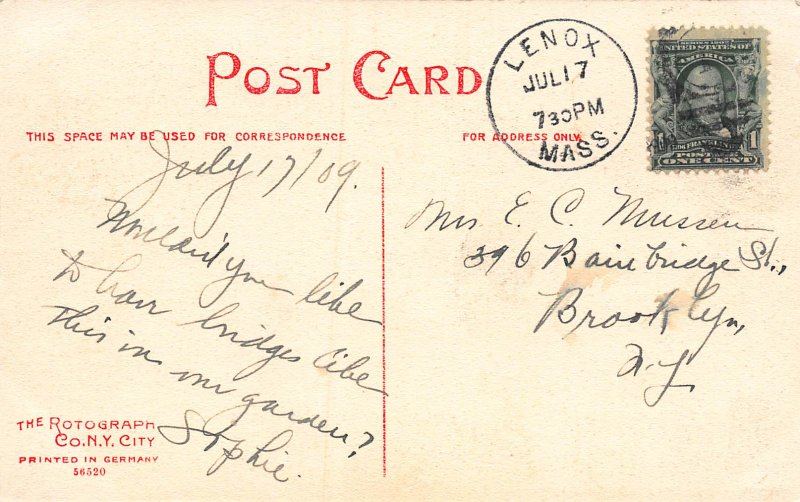 POST CARD
THIS SPACE MAY BE USED FOR CORRESPONDENCE
FOR ADDRESS ONLY.
LENOX
JUL 17
730 PM
MASS.
SERIES 1902
UNITED STATES OF
AMERICA
FRANKLIN
POSTAGE
1
ONE CENT
July 17/09.
Wouldn't you like
to have bridges like
this in our garden?
Sophie.
Mrs E. C. Mussen
396 Bainbridge St.,
Brooklyn,
N.Y.
THE ROTOGRAPH
CO. N.Y. CITY
PRINTED IN GERMANY
56520